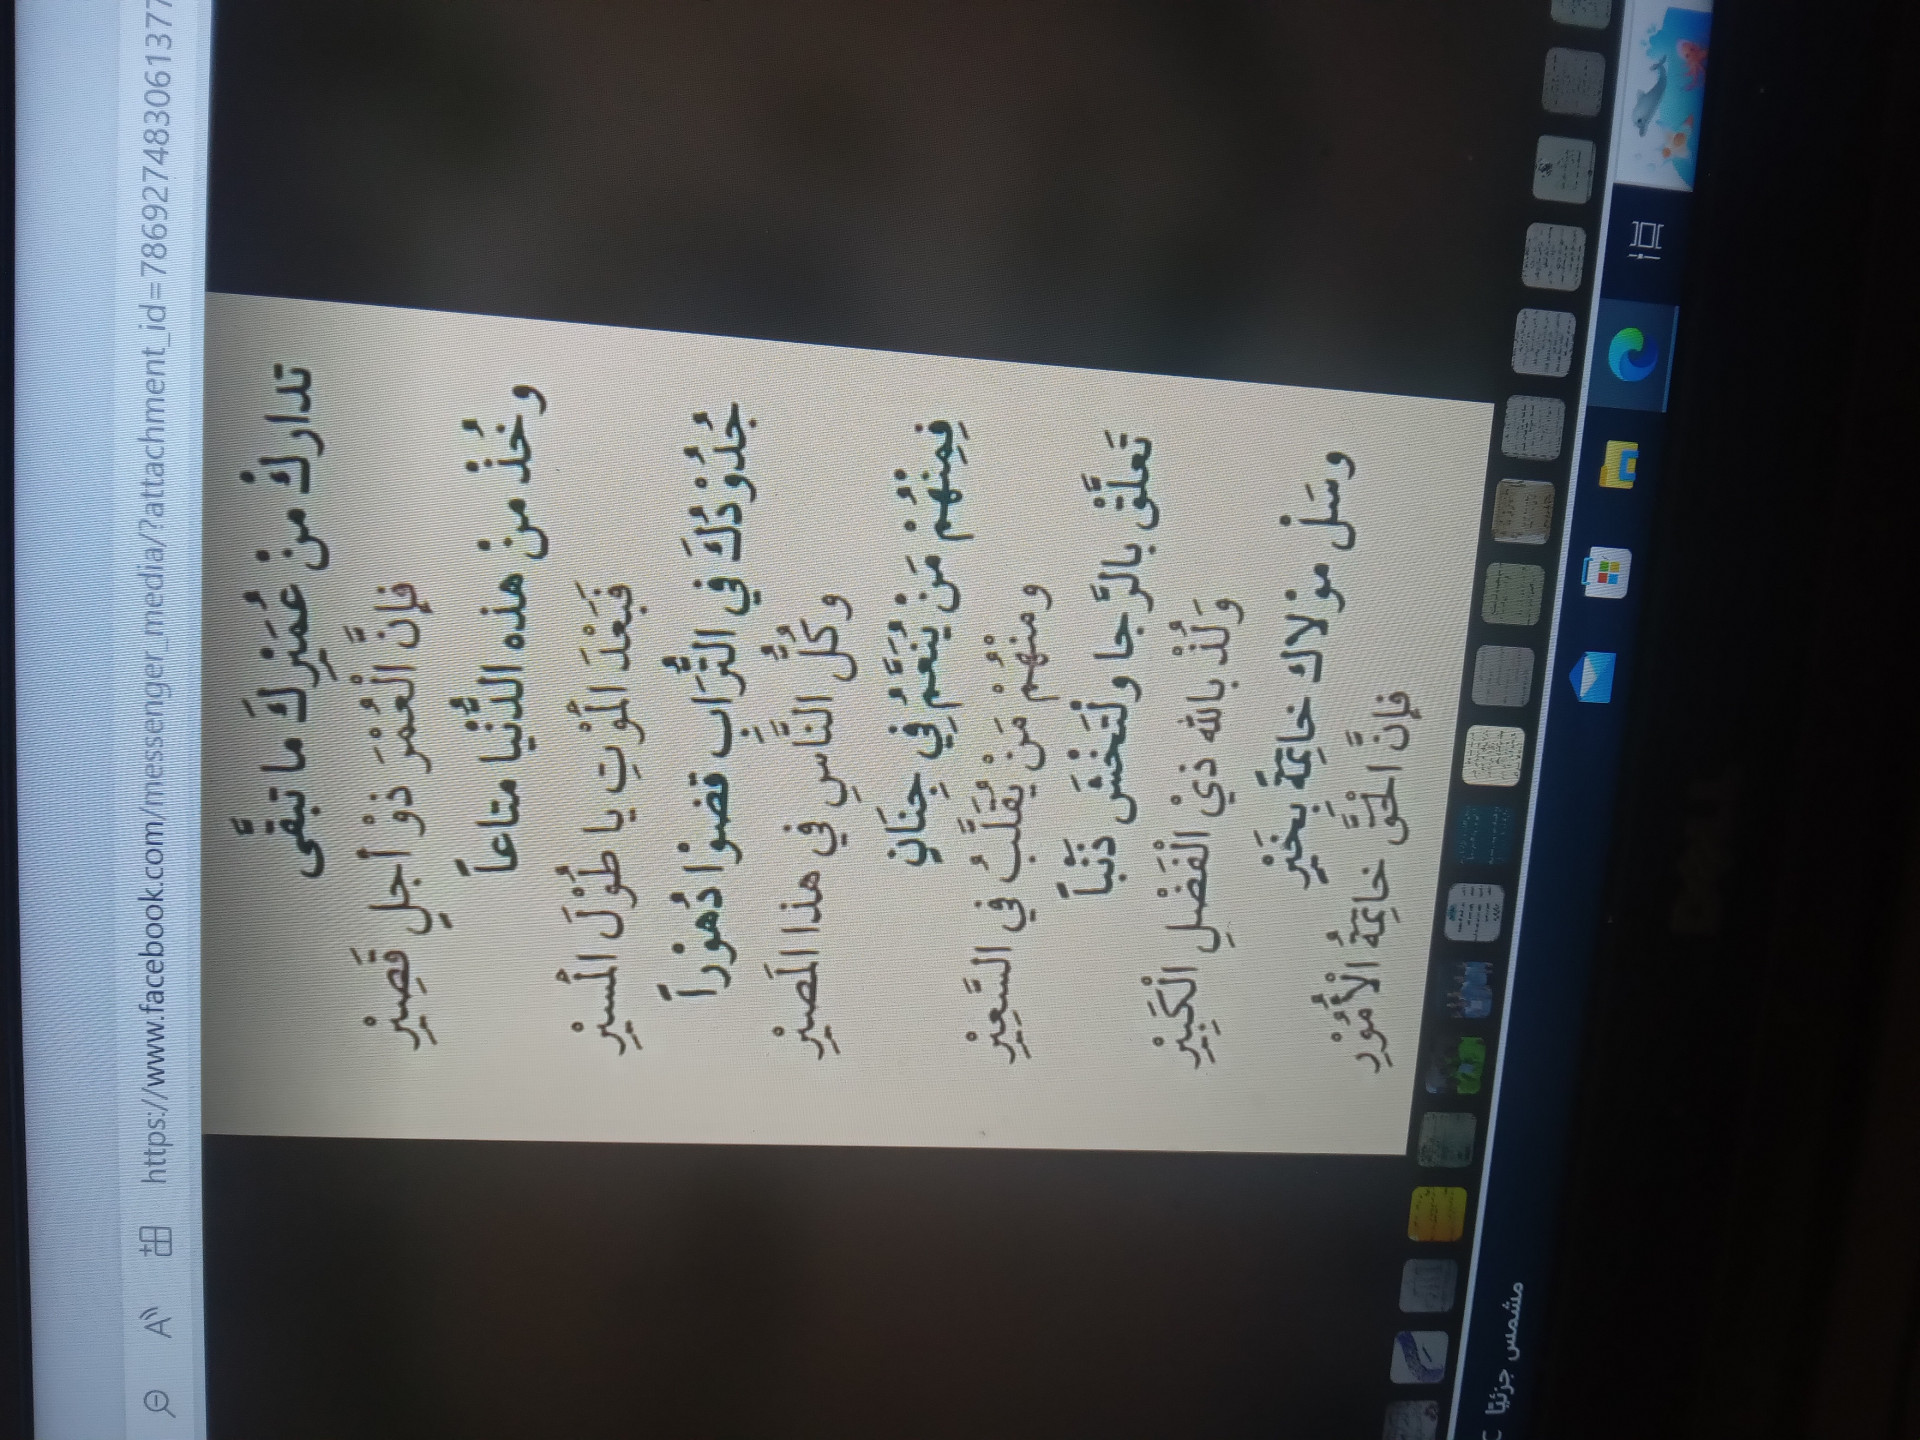 https://www.facebook.com/messenger_media/?attachment_id=78692748306137
تداركْ منْ عُمَيْرِكَ ما تبقَّى
فإنَّ الْعُمْرَ ذوْ أجلٍ قَصِيْرِ
وخُذْ منْ هذه الدُّنْيا متاعاً
فبَعْدَ المْوْتِ يا طُوْلَ المُسيْرِ
جُدُوْدُكَ في التُّرَابِ قضوْا دُهوْراً
وكُلُّ النَّاسِ في هذا المَصيْرِ
فِمِنْهُم مَنْ يُنَعَّمُ فِي جِنَانٍ
ومنْهُم مَنْ يُقَلَّبُ في السَّعِيْرِ
تَعلَّقْ بالرَّجا ولْتَخْشَ ذَنْباً
وَلُذْ بالله ذيْ الْفَضْلِ الْكَبِيْرِ
وسَلْ موْلاك خاتِمَةً بِخَيْرٍ
فإنَّ الحْقَّ خاتِمَةُ الْأُمُوْرِ
مشمس جزئيًا
DELL